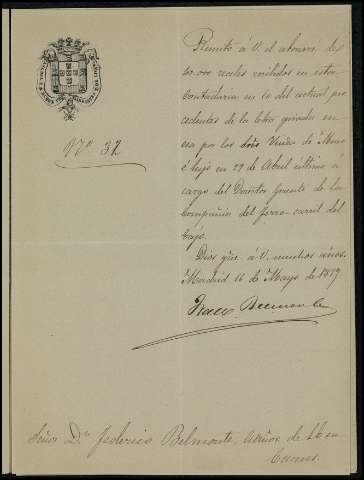 Nº 32
Remito á V. el abonaré de
10.000 reales recibidos en esta
Contaduria en 10 del actual pro
cedentes de la letra girada en
esa por los Sres Viuda de
é hijo en 29 de Abril último á
cargo del Director Gerente de la
Compañia del ferro-carril del
Tajo.
Dios gûe. á V. muchos años.
Madrid 16 de Mayo de 1879
Belmonte
Señor Dn. Federico Belmonte, Admor. de